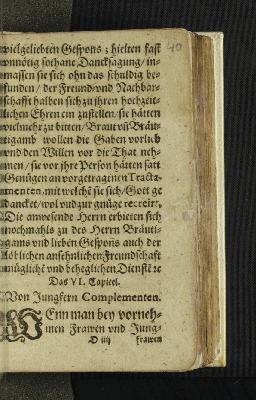 vielgeliebten Gespons; hielten fast
unnötig sothane Dancksagung / in-
massen sie sich ohn das schuldig be-
funden / der Freund- vnd Nachbar-
schafft halben sich zu jhren hochzeit-
lichen Ehren ein zustellen / sie hätten
vielmehr zu bitten / Braut vñ Bräut-
tigamb wollen die Gaben vorlieb
vnd den Willen vor die That neh-
men / sie vor jhre Person hätten satt
Genügen an vorgetragenen Tracta-
menten, mit welchē sie sich / Gott ge
dancket / wol vnd zur gnüge recreirt,
Die anwesende Herrn erbieten sich
nochmahls zu des Herrn Bräuti-
gams vnd lieben Gespons auch der
löblichen ansehnlichen Freundschaft
müglichē vnd beheglichen Dienste ꝛc
Das VI. Capitel.
Von Jungfern Complementen.
WEnn man bey vorneh-
men Frawen vnd Jung-
D iiij frawen
40